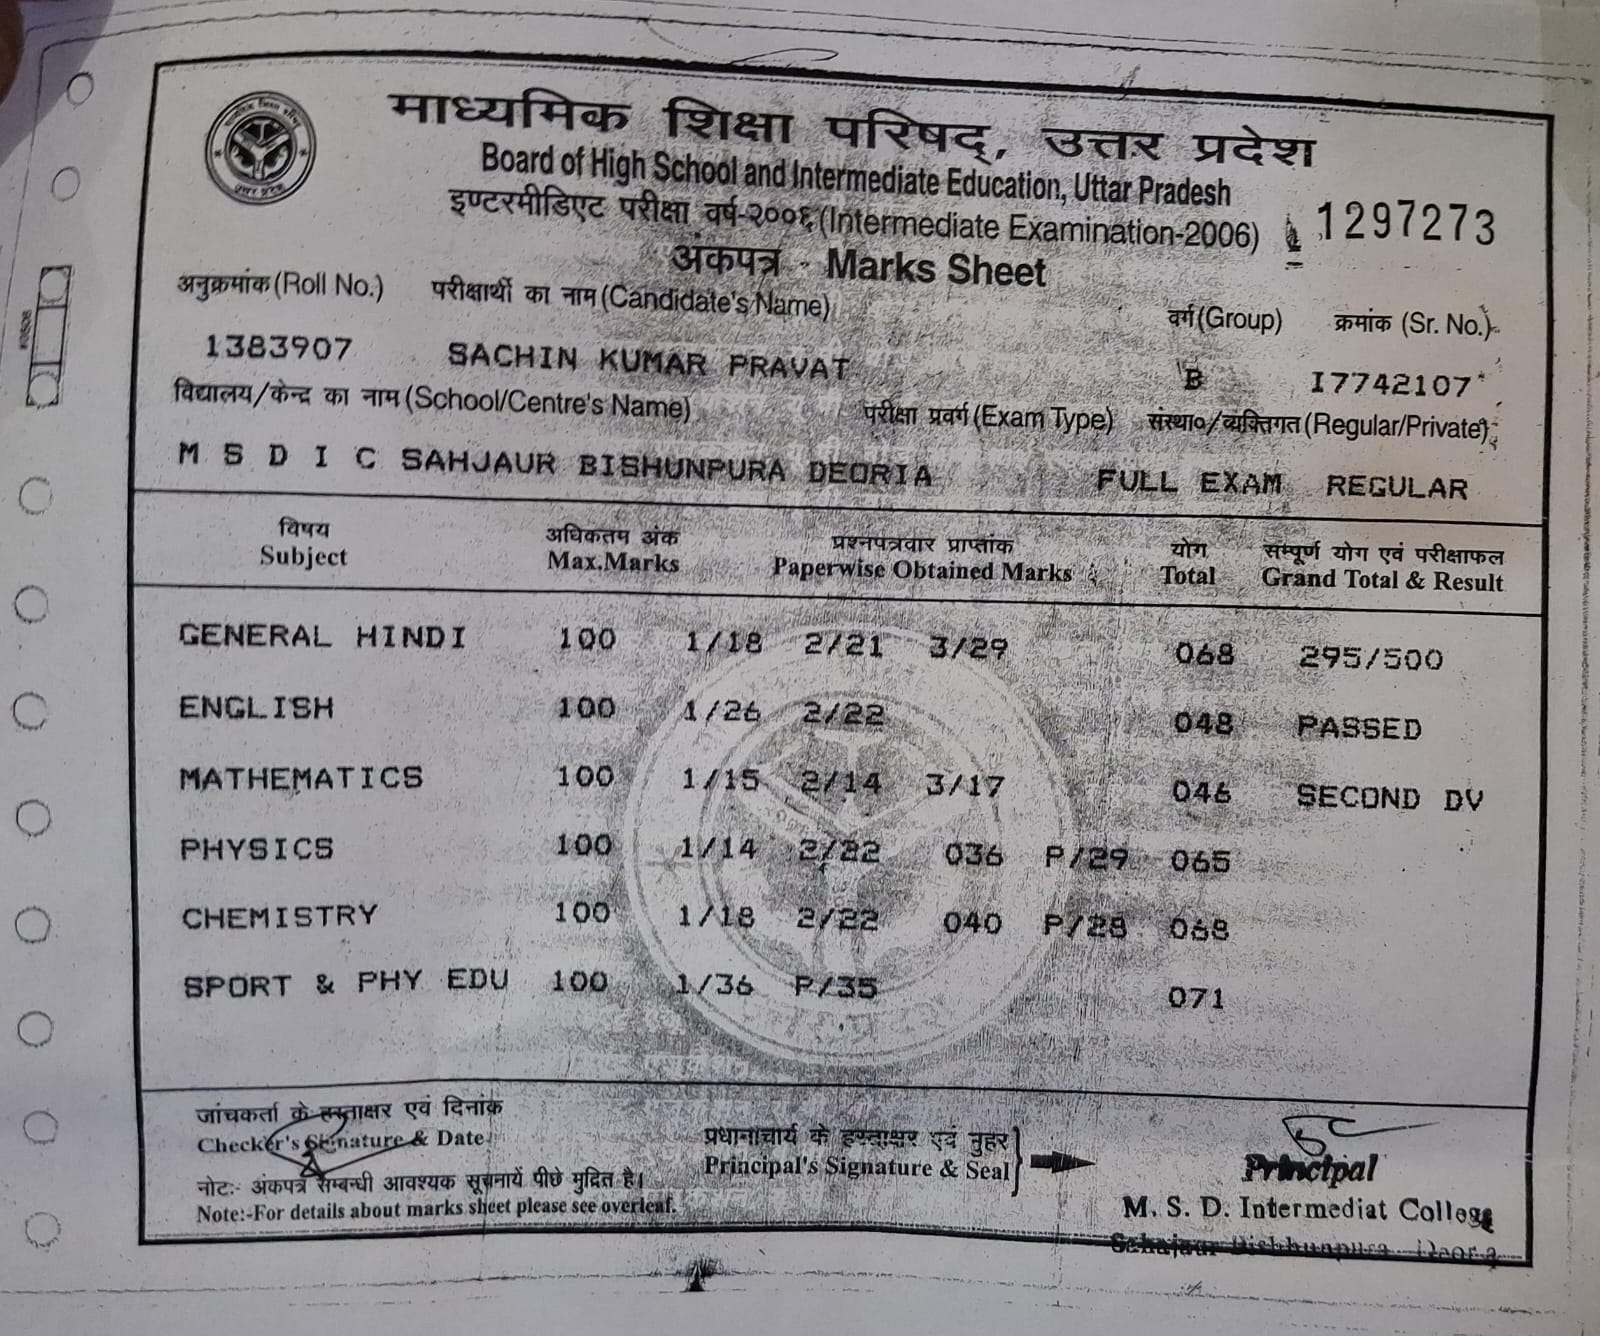 माध्यमिक शिक्षा परिषद्, उत्तर प्रदेश
Board of High School and Intermediate Education, Uttar Pradesh
इण्टरमीडिएट परीक्षा वर्ष-२००६ (Intermediate Examination-2006) 1297273
अंकपत्र - Marks Sheet
अनुक्रमांक (Roll No.) परीक्षार्थी का नाम (Candidate's Name) वर्ग (Group) क्रमांक (Sr. No.)
1383907 SACHIN KUMAR PRAVAT B I7742107
विद्यालय/केन्द्र का नाम (School/Centre's Name) परीक्षा प्रवर्ग (Exam Type) संस्था०/व्यक्तिगत (Regular/Private)
M S D I C SAHJAUR BISHUNPURA DEORIA FULL EXAM REGULAR
विषय अधिकतम अंक प्रश्नपत्रवार प्राप्तांक योग सम्पूर्ण योग एवं परीक्षाफल
Subject Max.Marks Paperwise Obtained Marks Total Grand Total & Result
GENERAL HINDI 100 1/18 2/21 3/29 068 295/500
ENGLISH 100 1/26 2/22 048 PASSED
MATHEMATICS 100 1/15 2/14 3/17 046 SECOND DV
PHYSICS 100 1/14 2/22 036 P/29 065
CHEMISTRY 100 1/18 2/22 040 P/28 068
SPORT & PHY EDU 100 1/36 P/35 071
जांचकर्ता के हस्ताक्षर एवं दिनांक
Checker's Signature & Date
प्रधानाचार्य के हस्ताक्षर एवं मुहर
Principal's Signature & Seal
नोटः- अंकपत्र सम्बन्धी आवश्यक सूचनायें पीछे मुद्रित है।
Note:-For details about marks sheet please see overleaf.
Principal
M. S. D. Intermediat College